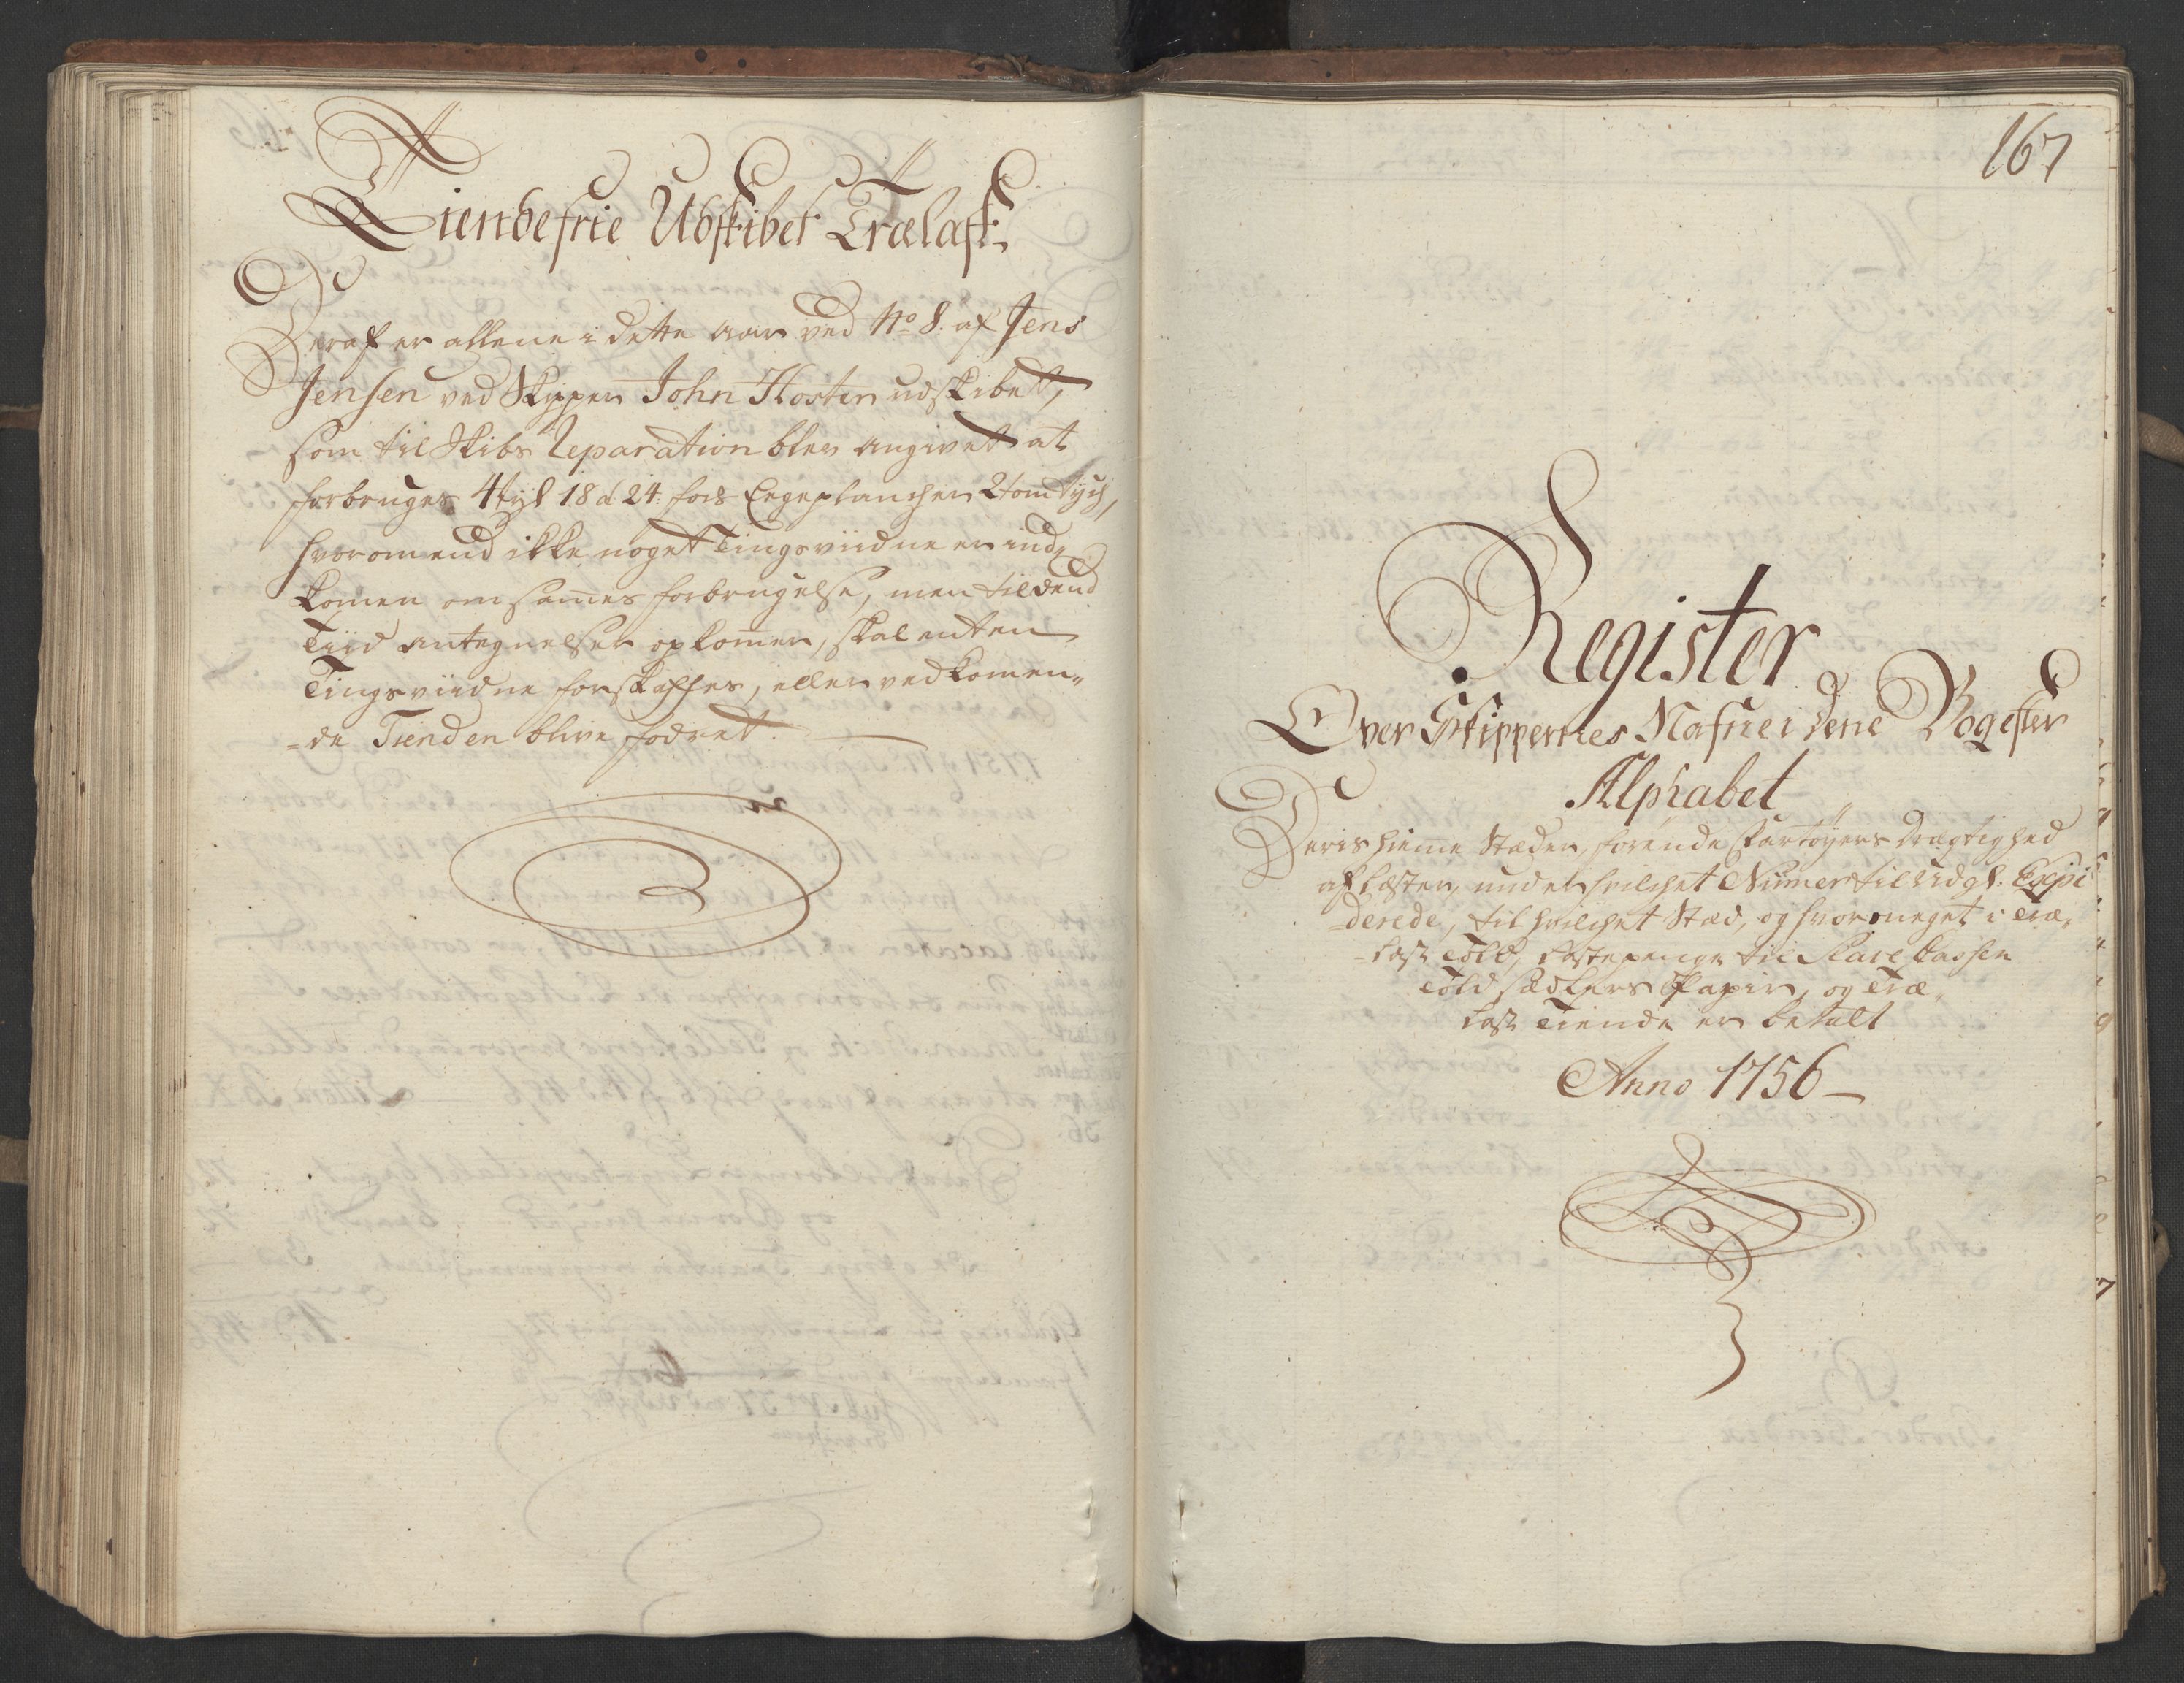 Tiendefrie Udskibet Trælast
Deraf er allene i dette aar ved No 8. af Jens
Jensen ved Skipper John Kloster udskibett,
som til Skibs Reparation blev angivet at
forbruges 4 tylt 18 a 24. fods Eegeplancher 2 tom tych,
hvorom end ikke noget Tingsviidne er ind,,
komen om sames forbrugelse, men til dend
Tiid antegnelser opkomer, skal enten
Tingsviidne forskaffes, eller vedkomen,,
=de Tienden blive fodret.
167
Register
Over Skippernes Nafne i dene Bog efter
Alphabet
Deris hieme Stæder, førende fartøyers Drægtighed
af læster, under hvilchet Numer til lidgl. Expi
=derede, til hvilchet Stæd, og hvor meget i Træ,,
=last Told, Læstepenge til Slave Cassen
Told sædlers Papir, og Træ,,
last Tiende er betalt
Anno 1756